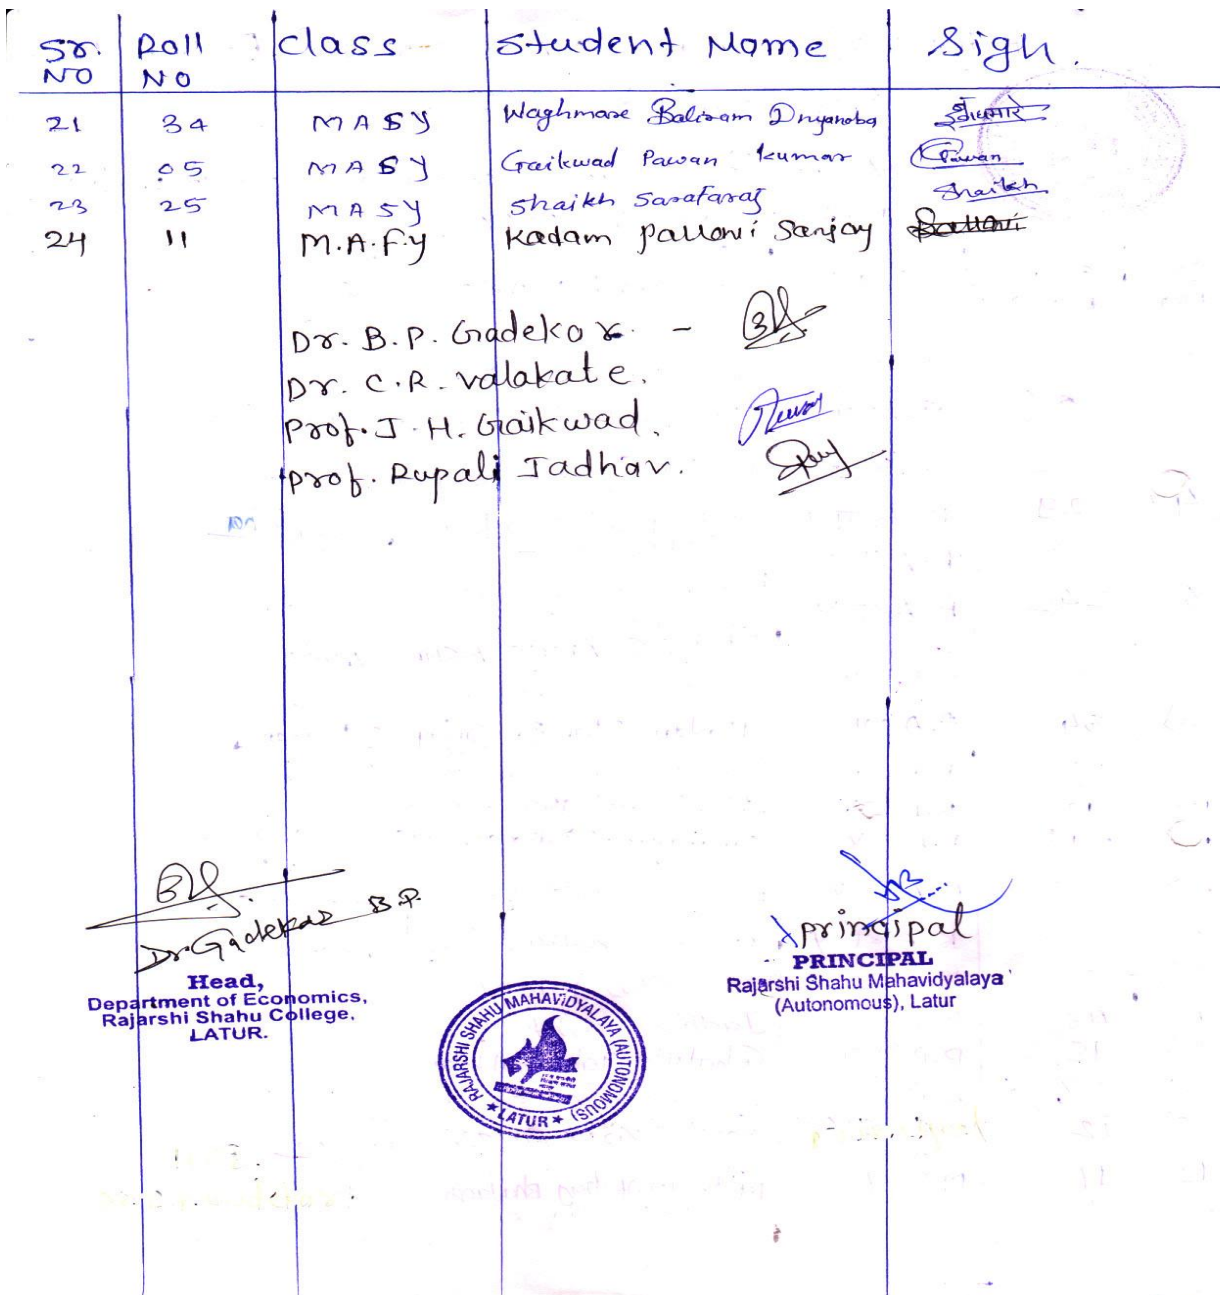 Sr. NO Roll NO class Student Name Sign.
21 34 MASY Waghmare Baliram Dnyanoba
22 05 MASY Gaikwad Pawan kumar Pawan
23 25 MASY Shaikh Sarafaraj Shaikh
24 11 M.A.F.Y Kadam Pallavi Sanjay Pallavi
Dr. B.P. Gadekar. -
Dr. C.R. Valakate.
Prof. J.H. Gaikwad.
Prof. Rupali Jadhav.
Dr. Gadekar B.P.
Head,
Department of Economics,
Rajarshi Shahu College,
LATUR.
RAJARSHI SHAHU MAHAVIDYALAYA (AUTONOMOUS)
★ LATUR ★
principal
PRINCIPAL
Rajarshi Shahu Mahavidyalaya
(Autonomous), Latur